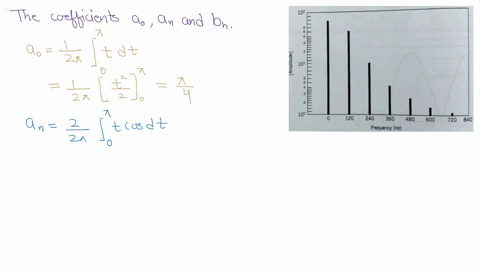 The coefficients a₀, aₙ and bₙ.
a₀ = 1/2π ∫₀^π t dt
= 1/2π [t²/2]₀^π = π/4
aₙ = 2/2π ∫₀^π t cos dt
|Amplitude|
10²
10¹
10⁰
0 120 240 360 480 600 720 840
Frequency (Hz)